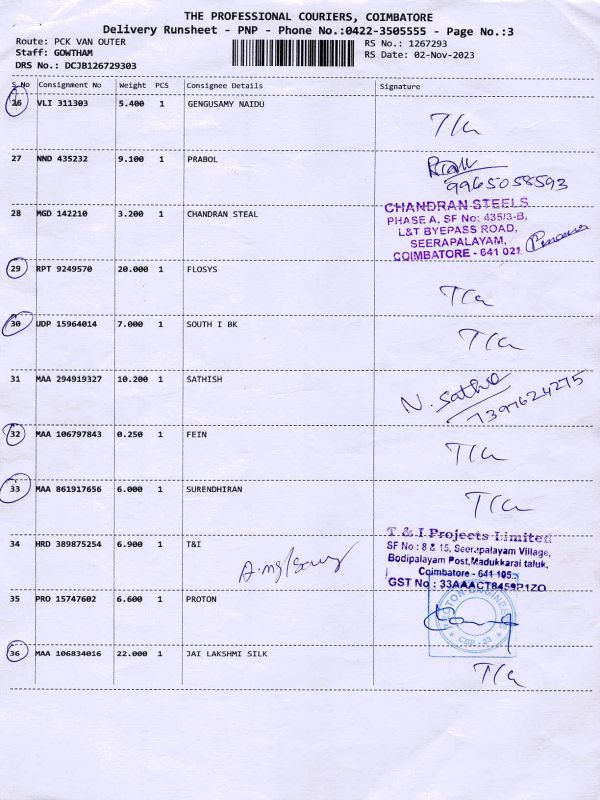 THE PROFESSIONAL COURIERS, COIMBATORE
Delivery Runsheet - PNP - Phone No.:0422-3505555 - Page No.:3
Route: PCK VAN OUTER RS No.: 1267293
Staff: GOWTHAM RS Date: 02-Nov-2023
DRS No.: DCJB126729303
S.No Consignment No Weight PCS Consignee Details Signature
26 VLI 311303 5.400 1 GENGUSAMY NAIDU
27 NND 435232 9.100 1 PRABOL
9965058593
28 MGD 142210 3.200 1 CHANDRAN STEAL
CHANDRAN STEELS
PHASE A, SF No: 435/3-B,
L&T BYEPASS ROAD,
SEERAPALAYAM,
COIMBATORE - 641 021
29 RPT 9249570 20.000 1 FLOSYS
30 UDP 15964014 7.000 1 SOUTH I BK
31 MAA 294919327 10.200 1 SATHISH
N. Sathis
7397624275
32 MAA 106797843 0.250 1 FEIN
33 MAA 861917656 6.000 1 SURENDHIRAN
34 HRD 389875254 6.900 1 T&I
T & I Projects Limited
SF No : 8 & 15, Seerapalayam Village,
Bodipalayam Post,Madukkarai taluk,
Coimbatore - 641 105.
GST No : 33AAACT8459P1ZO
35 PRO 15747602 6.600 1 PROTON
PROTON ENGINEERS
CBE - 23
36 MAA 106834016 22.000 1 JAI LAKSHMI SILK